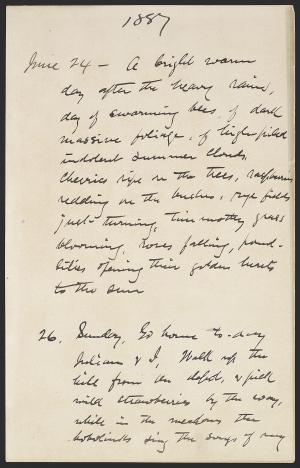 1887
June 24 - A bright warm
day after the heavy rains,
day of swarming bees, of dark
massive foliage, of high-piled
indolent summer clouds.
Cherries ripe on the trees, raspberries
redding on the bushes, rye fields
just turning, timothy grass
blooming, roses falling, pond-
lilies opening their golden hearts
to the sun
26. Sunday, Go home to-day
Julian & I, Walk up the
hill from the depot, & pick
wild strawberries by the way,
while in the meadows the
bobolinks sing the songs of my